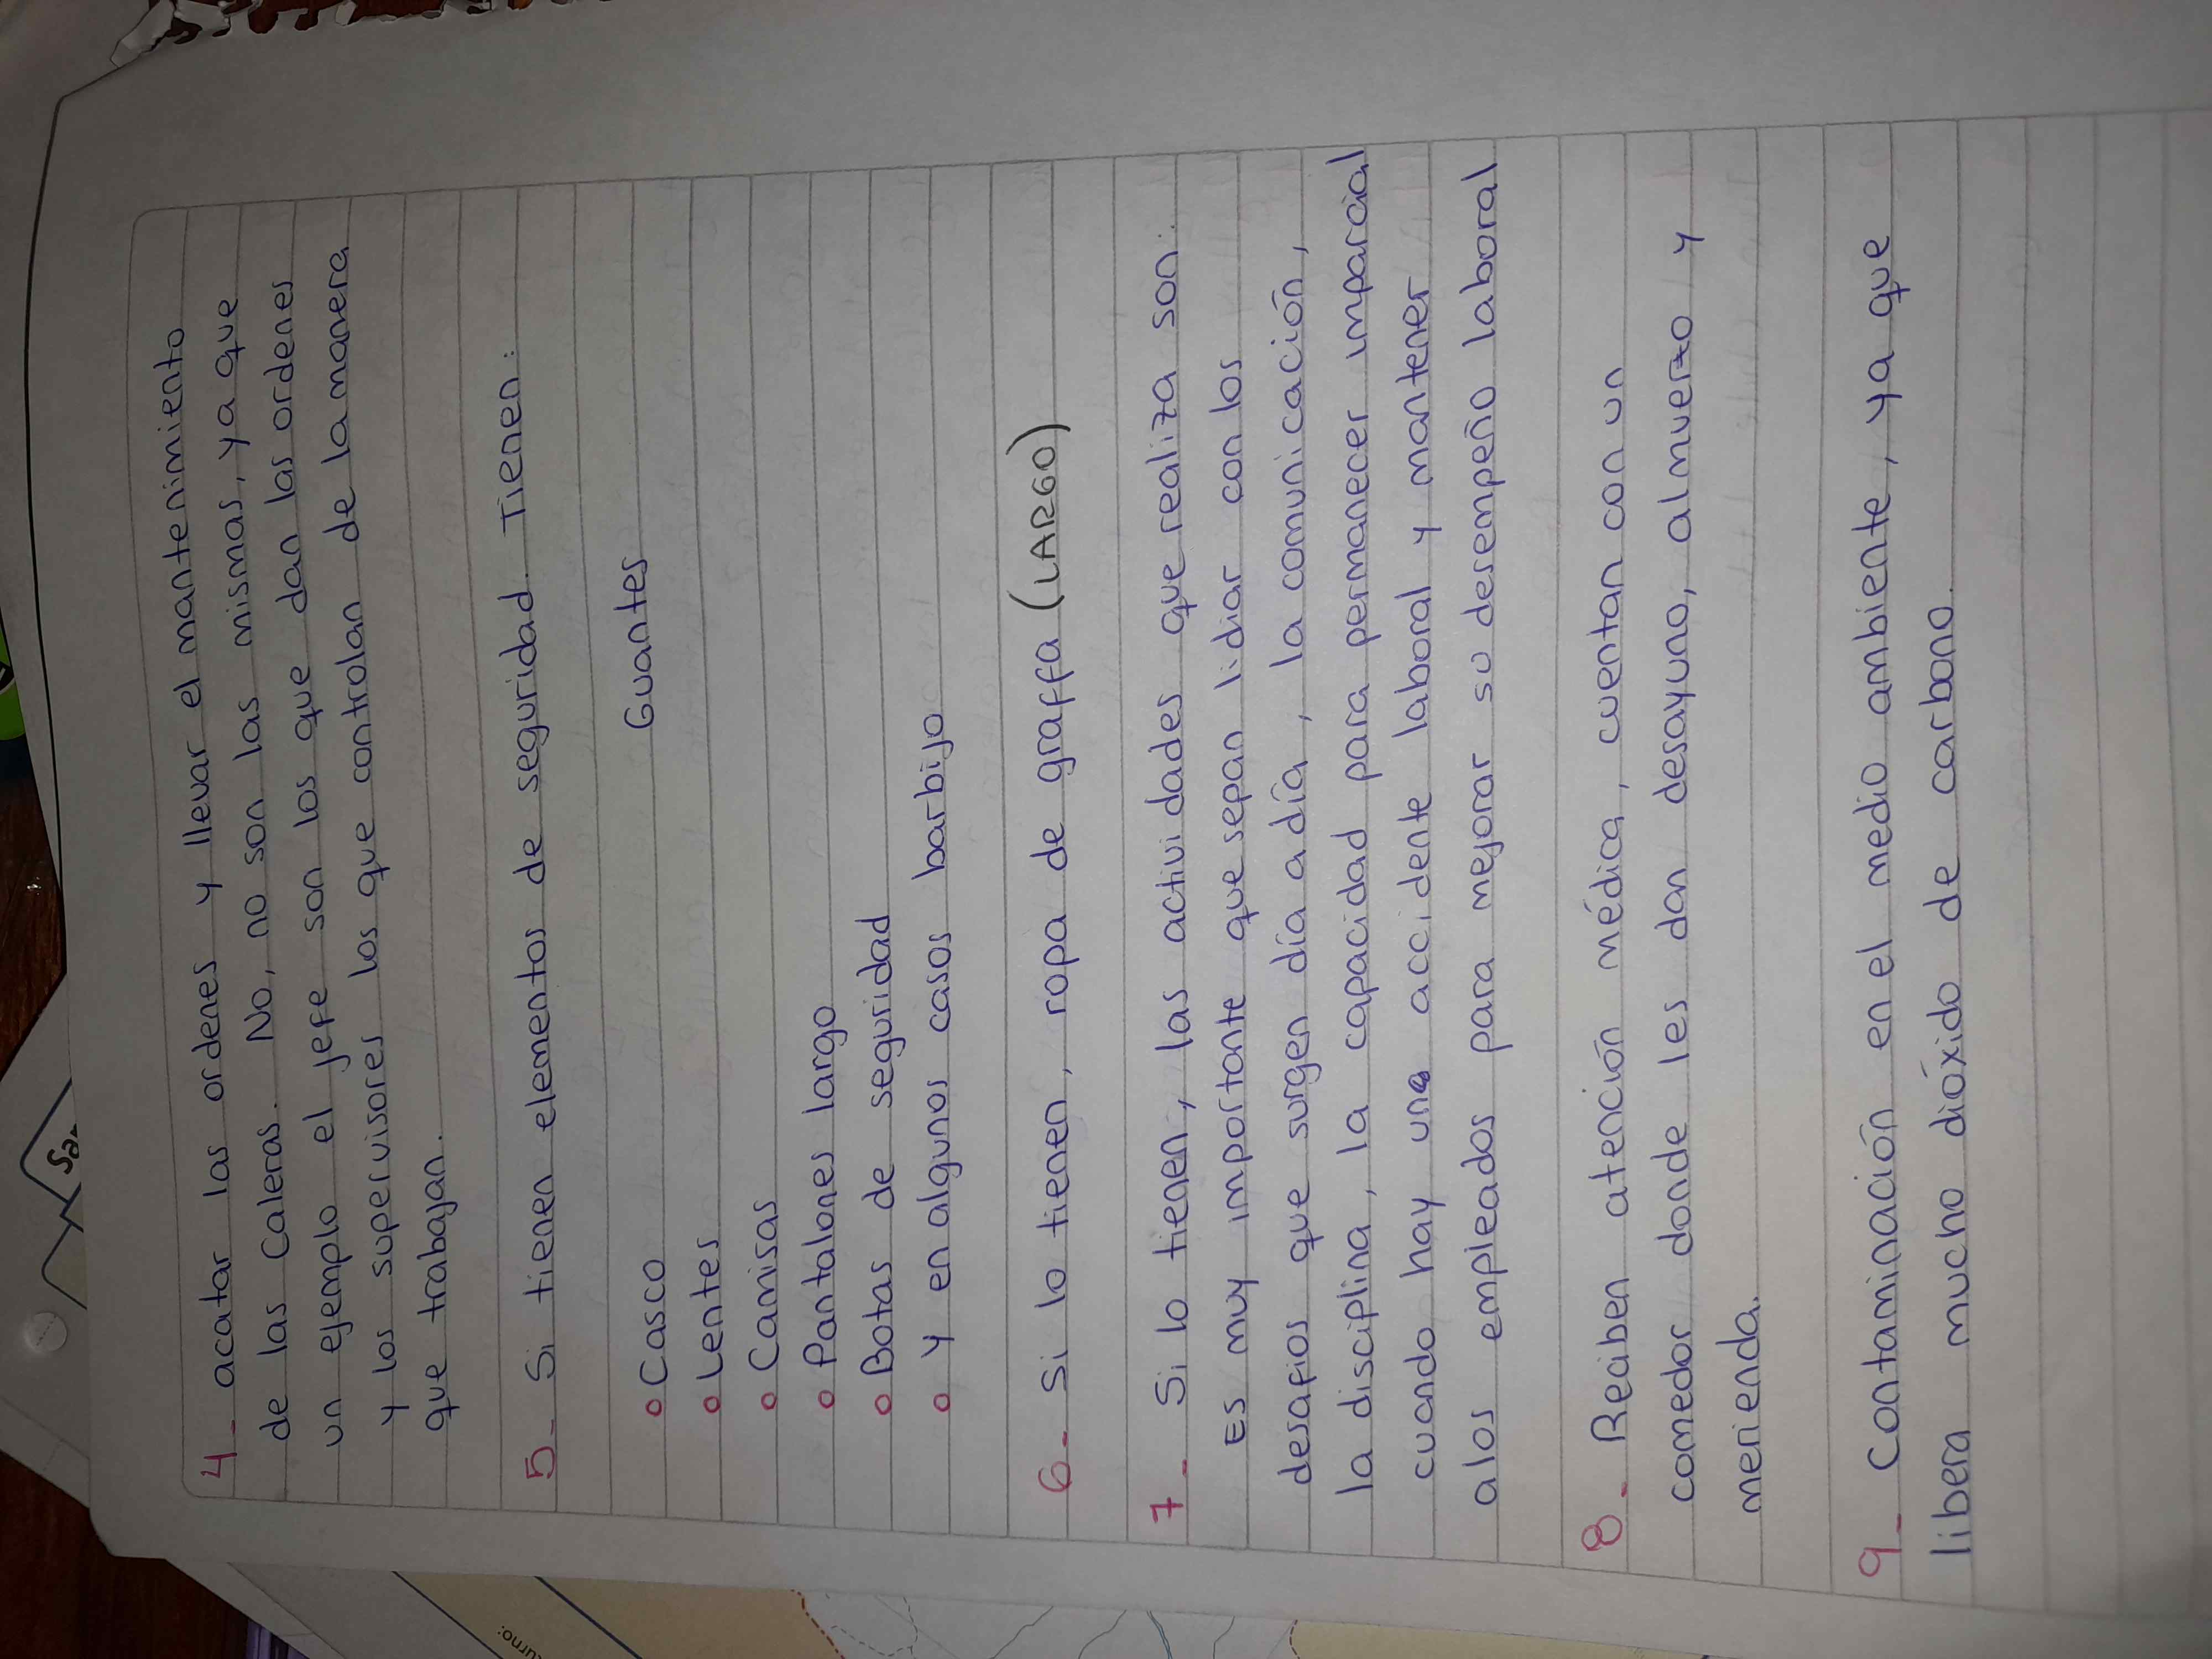 4_ acatar las ordenes y llevar el mantenimiento
de las Caleras. No, no son las mismas, ya que
un ejemplo el jefe son los que dan las ordenes
y los supervisores los que controlan de la manera
que trabajan.
5_ Si tienen elementos de seguridad. Tienen:
o Casco Guantes
o Lentes
o Camisas
o Pantalones largo
o Botas de seguridad
o y en algunos casos barbijo
6_ Si lo tienen, ropa de graffa (LARGO)
7_ Si lo tienen, las actividades que realiza son:
Es muy importante que sepan lidiar con los
desafios que surgen día a día, la comunicación,
la disciplina, la capacidad para permanecer imparcial
cuando hay una accidente laboral y mantener
a los empleados para mejorar su desempeño laboral
8_ Reciben atención médica, cuentan con un
comedor donde les dan desayuno, almuerzo y
merienda.
9_ Contaminación en el medio ambiente, ya que
libera mucho dióxido de carbono.
urno: